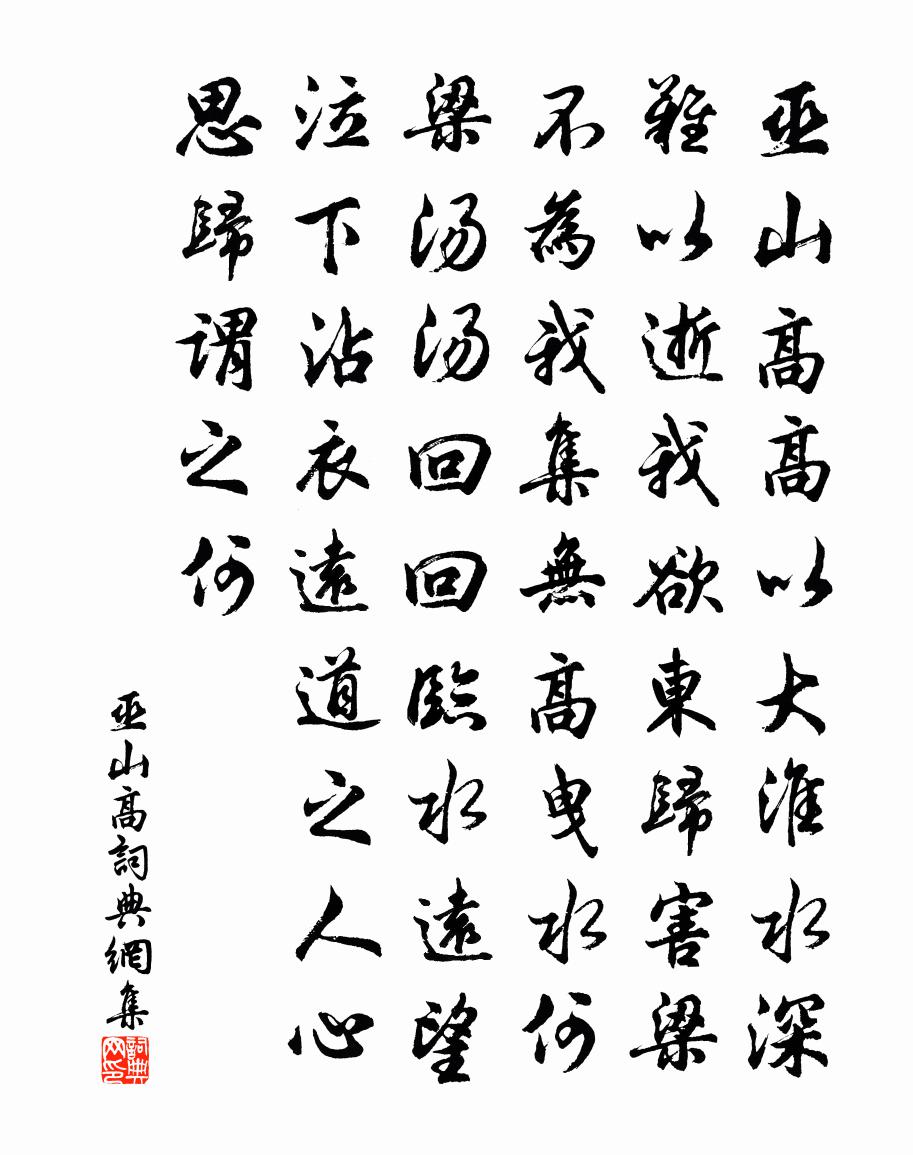 巫山高高以大淮水深
難以逝我欲東歸害梁
不為我集無高曳水何
梁湯湯回回臨水遠望
泣下沾衣遠道之人心
思歸謂之何
巫山高詞典網集
詞典网印